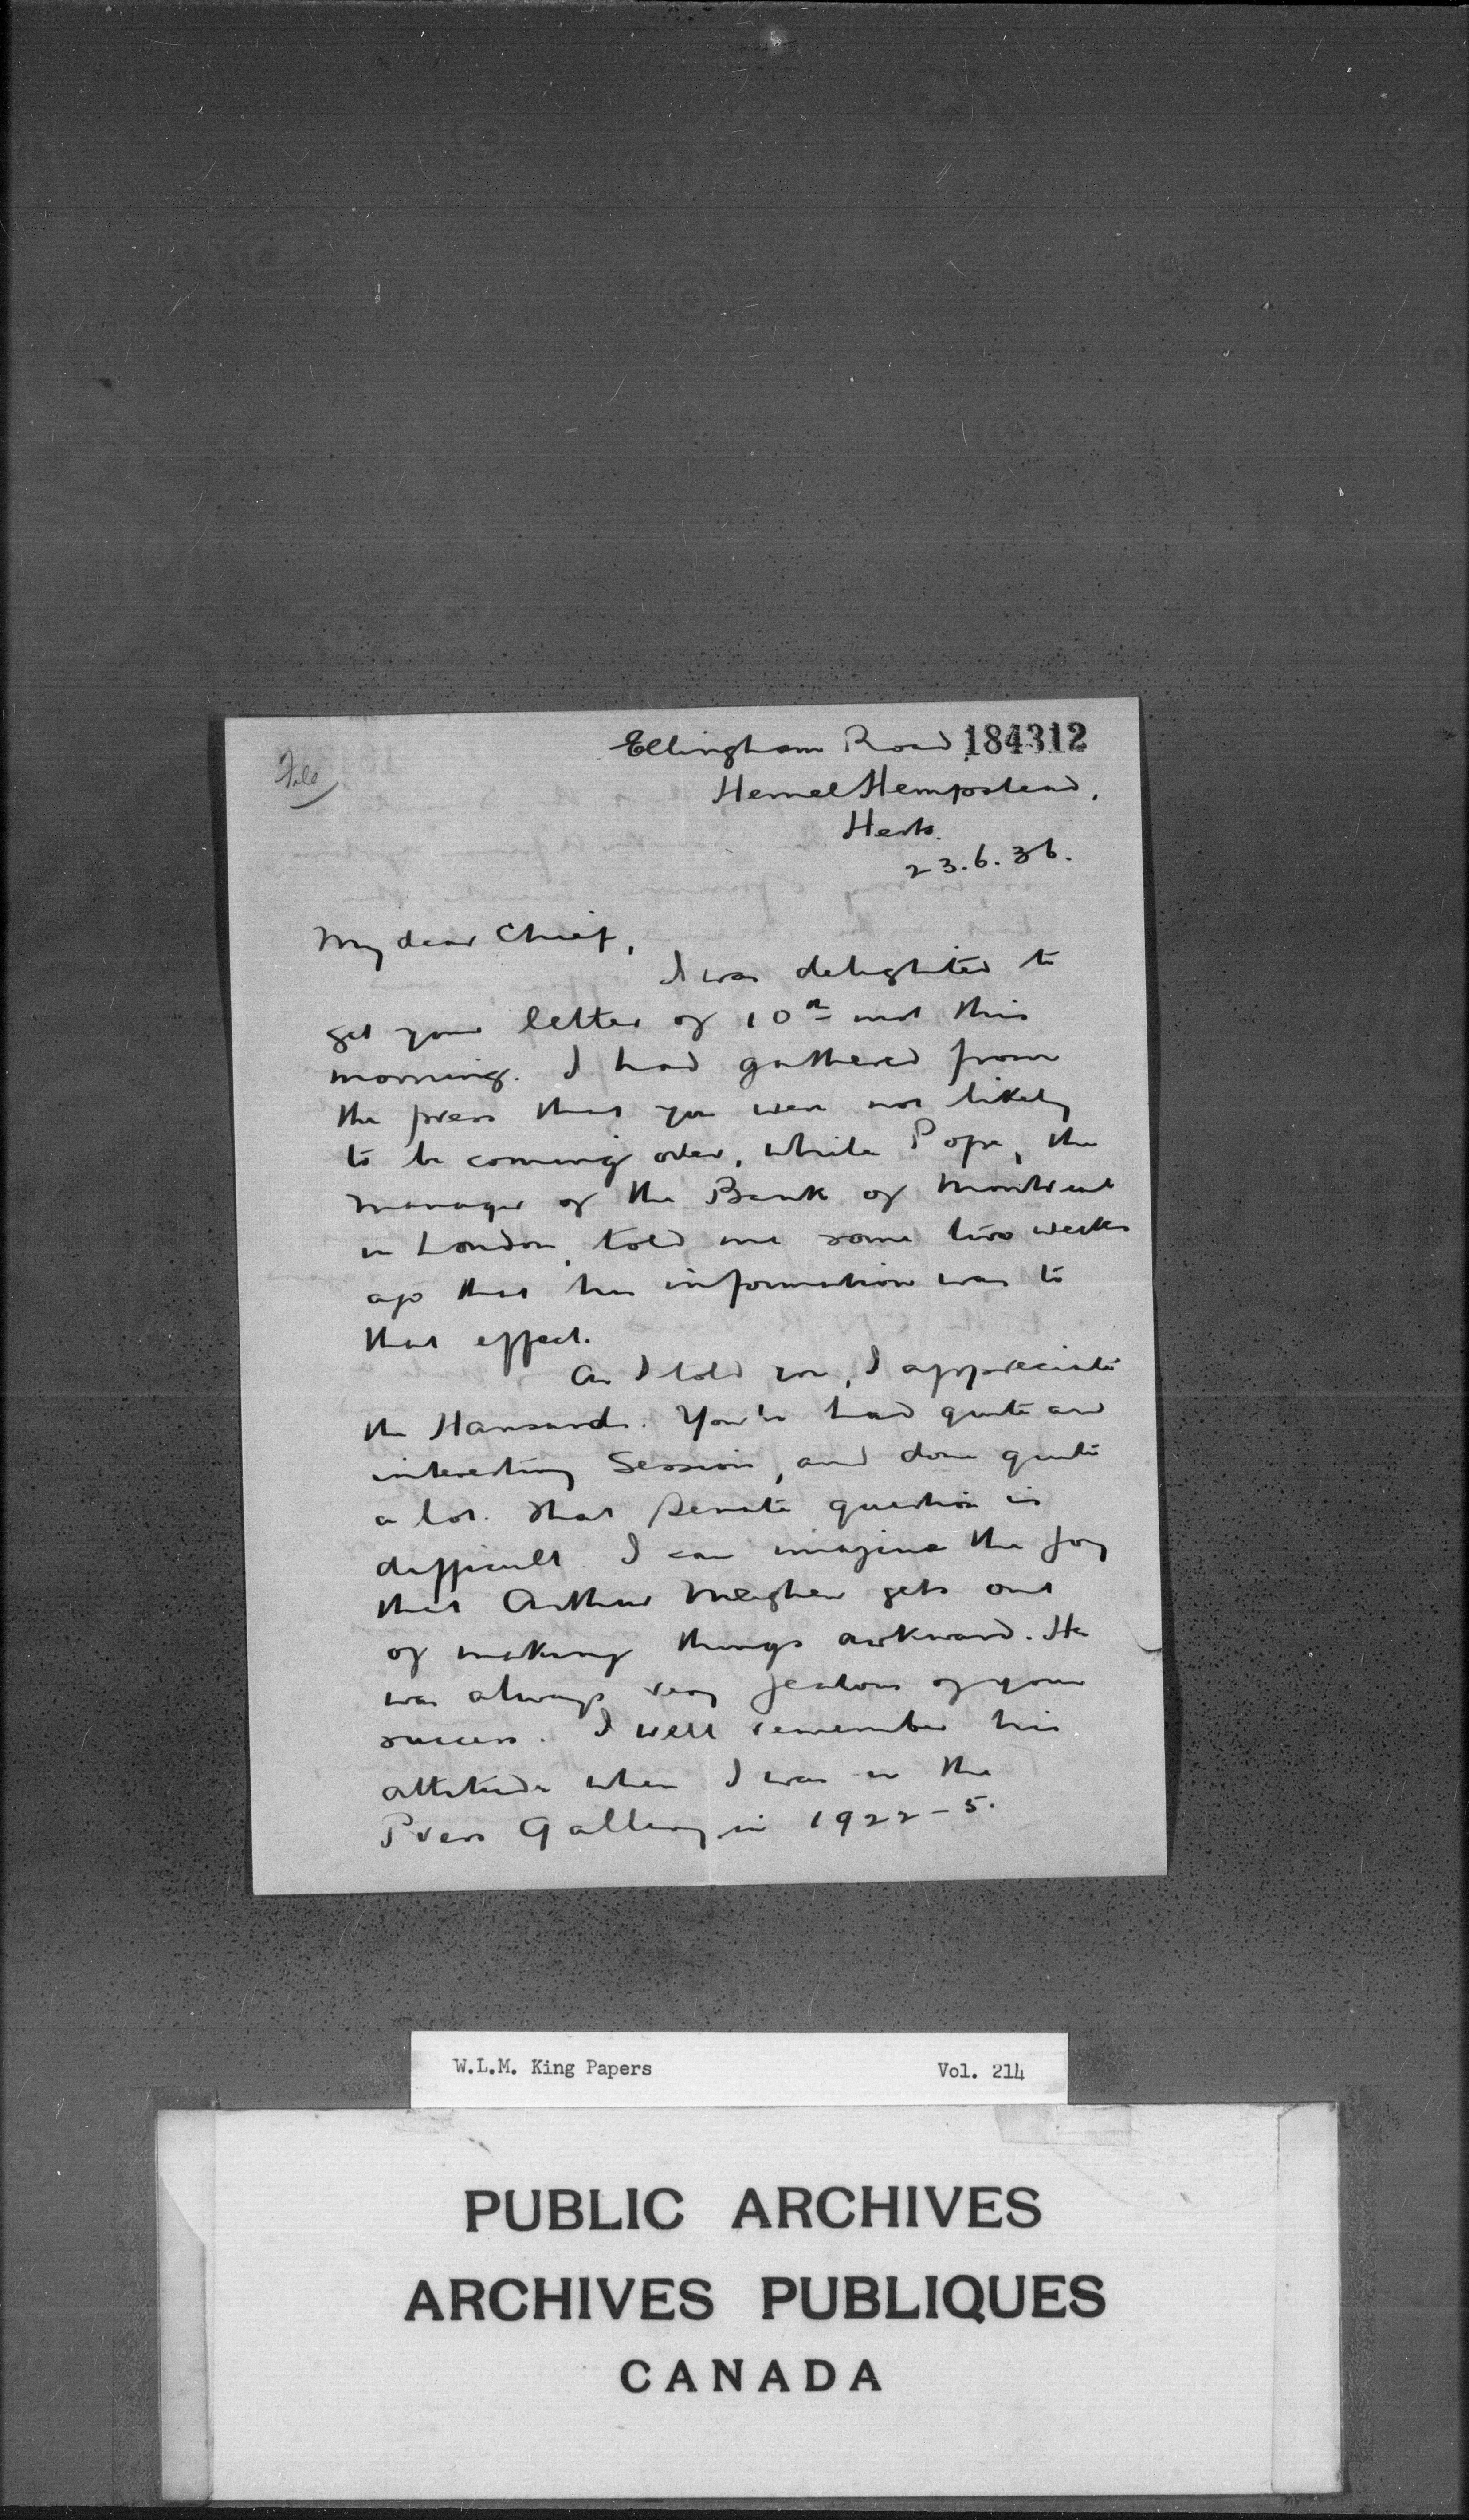 184312
File
Ellingham Road
Hemel Hempstead,
Herts.
23.6.36.
My dear Chief,
I was delighted to
get your letter of 10th inst this
morning. I had gathered from
the press that you were not likely
to be coming over, while Pope, the
manager of the Bank of Montreal
in London, told me some two weeks
ago that his information was to
that effect.
As I told you, I appreciate
the Hansards. You've had quite an
interesting Session, and done quite
a lot. That Senate question is
difficult. I can imagine the joy
that Arthur Meighen gets out
of making things awkward. He
was always very jealous of your
success. I well remember his
attitude when I was in the
Press Gallery in 1922-5.
W.L.M. King Papers Vol. 214
PUBLIC ARCHIVES
ARCHIVES PUBLIQUES
CANADA